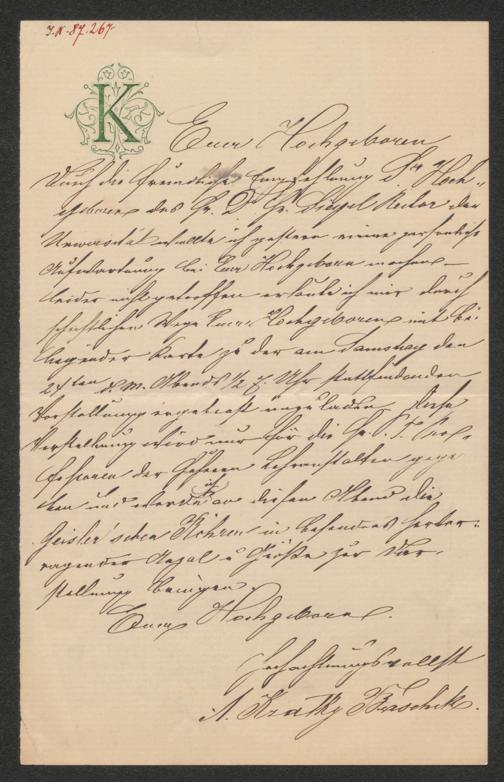 J.N. 87.267
K
Euer Hochgeboren
Durch die freundliche Empfehlung Sr Hoch-
geboren des Hr. Dr Gr. Rector der
Universität wollte ich gestern meine persönliche
Aufwartung bei Euer Hochgeboren machen –
leider nicht getroffen erlaube ich mir durch
schriftlichen Wege Euer Hochgeboren mit bei-
liegender Karte zu der am Samstag den
24ten d. M. Abends 1/2 7 Uhr stattfindenden
Vorstellung ergebenst einzuladen. Diese
Vorstellung wird nur für die Hr. P. T. Prof-
essoren der höheren Lehranstalten gege-
ben und werde ich an diesen Abend die
Geisler'schen Röhren in besonders hervor-
ragender Anzal u Größe zur Vor-
stellung bringen
Euer Hochgeboren
hochachtungsvollst
A. Kratky Baschik.